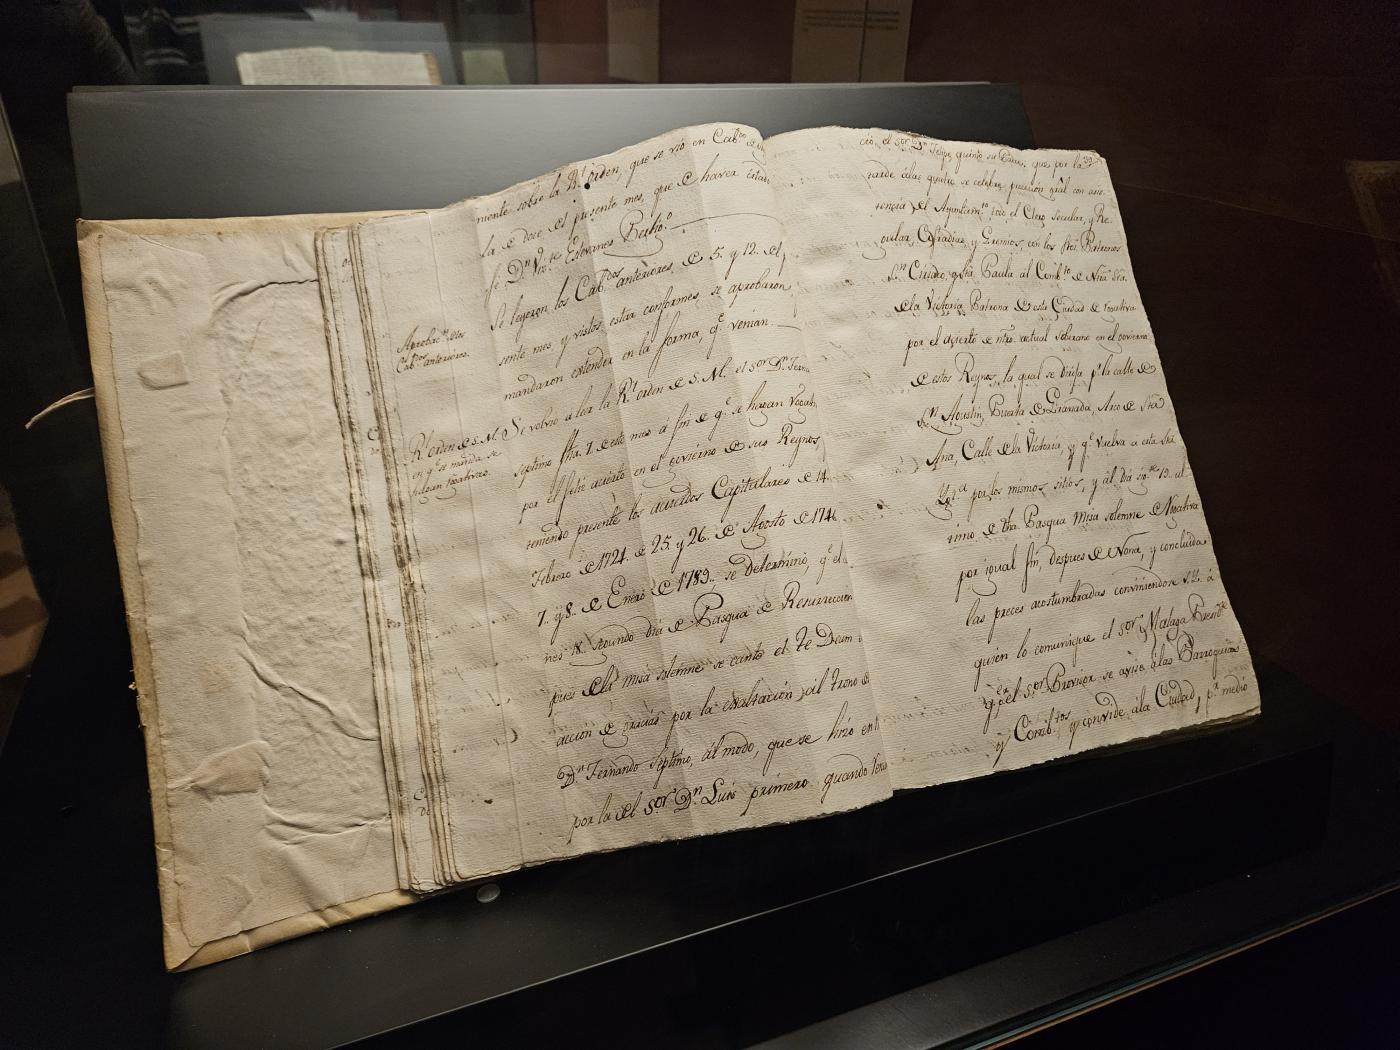 niente sobre la Rl. orden, que se vió en Cabdo.
la de doce del presente mes, que de haver
fé Dn. Vizte. Estevanes
Se leyeron los Cabdos anteriores de 5. y 12. del p
Aprobacn. de los
Cabdos anteriores.
sente mes y vistos estar conformes, se aprobaron
mandaron extender en la forma, qe. venian.
Rl. orden de S. M.
en qe. se manda se
hagan rogativas.
Se volvió a leer la Rl. orden de S. M. el Sor. Dn. Fern
Septimo fha. 7. de este mes á fin de qe. se hagan rogati
por el feliz acierto en el govierno de sus Reynos,
teniendo presente los acuerdos Capitulares de 14.
Febrero de 1724. de 25. y 26. de Agosto de 1746
7. y 8. de Enero de 1789. se determinó, qe. el
nes 18. segundo dia de Pasqua de Resurreccion
pues de la misa solemne se cante el Te Deum
acción de gracias por la exaltación al trono de
Dn. Fernando Septimo, al modo, que se hizo en
por la del Sor. Dn. Luis primero quando
ció, el Sor. Dn. Felipe quinto su Padre; que por la
tarde á las quatro se celebre procesion gral con asis
tencia del Ayuntamto. todo el Clero secular, y Re
gular, Cofradias, y Gremios, con los Stos. Patronos
Sn. Ciriaco, y Sta. Paula al Combto. de Ntra. Sra.
de la Victoria Patrona de esta Ciudad de rogativa
por el acierto de ntro. actual soberano en el govierno
de estos Reynos, la qual se dirija pr. la calle de
Sn. Agustin, Puerta de Granada, Arco de Sta.
Ana, Calle de la Victoria, y qe. vuelva a esta Sta.
Yglª. por los mismos sitios, y al dia sigte. 19. ul
timo de dha. Pasqua Misa solemne de Rogativa
por igual fin, despues de Nona, y concluida
las preces acostumbradas conviniendose S. Y. á
quien lo comunique el Sor. Malaga Presidte.
y qe. el Sor. Provisor se avise á las Parroquias
y Combtos. y convide á la Ciudad, pr. medio